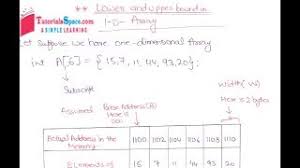 TutorialsSpace.com
A SIMPLE LEARNING
** Lower and upper bound in
1-D- Array
Let suppose we have one-dimensional Array
int A[6] = {15,7,11,44,93,20};
Subscript
Assumed Base Address(A)
Here is 1100
Width(W)
Here is 2 bytes
Actual Address in the Memory 1100 1102 1104 1106 1108 1110
Elements of 15 7 11 44 93 20